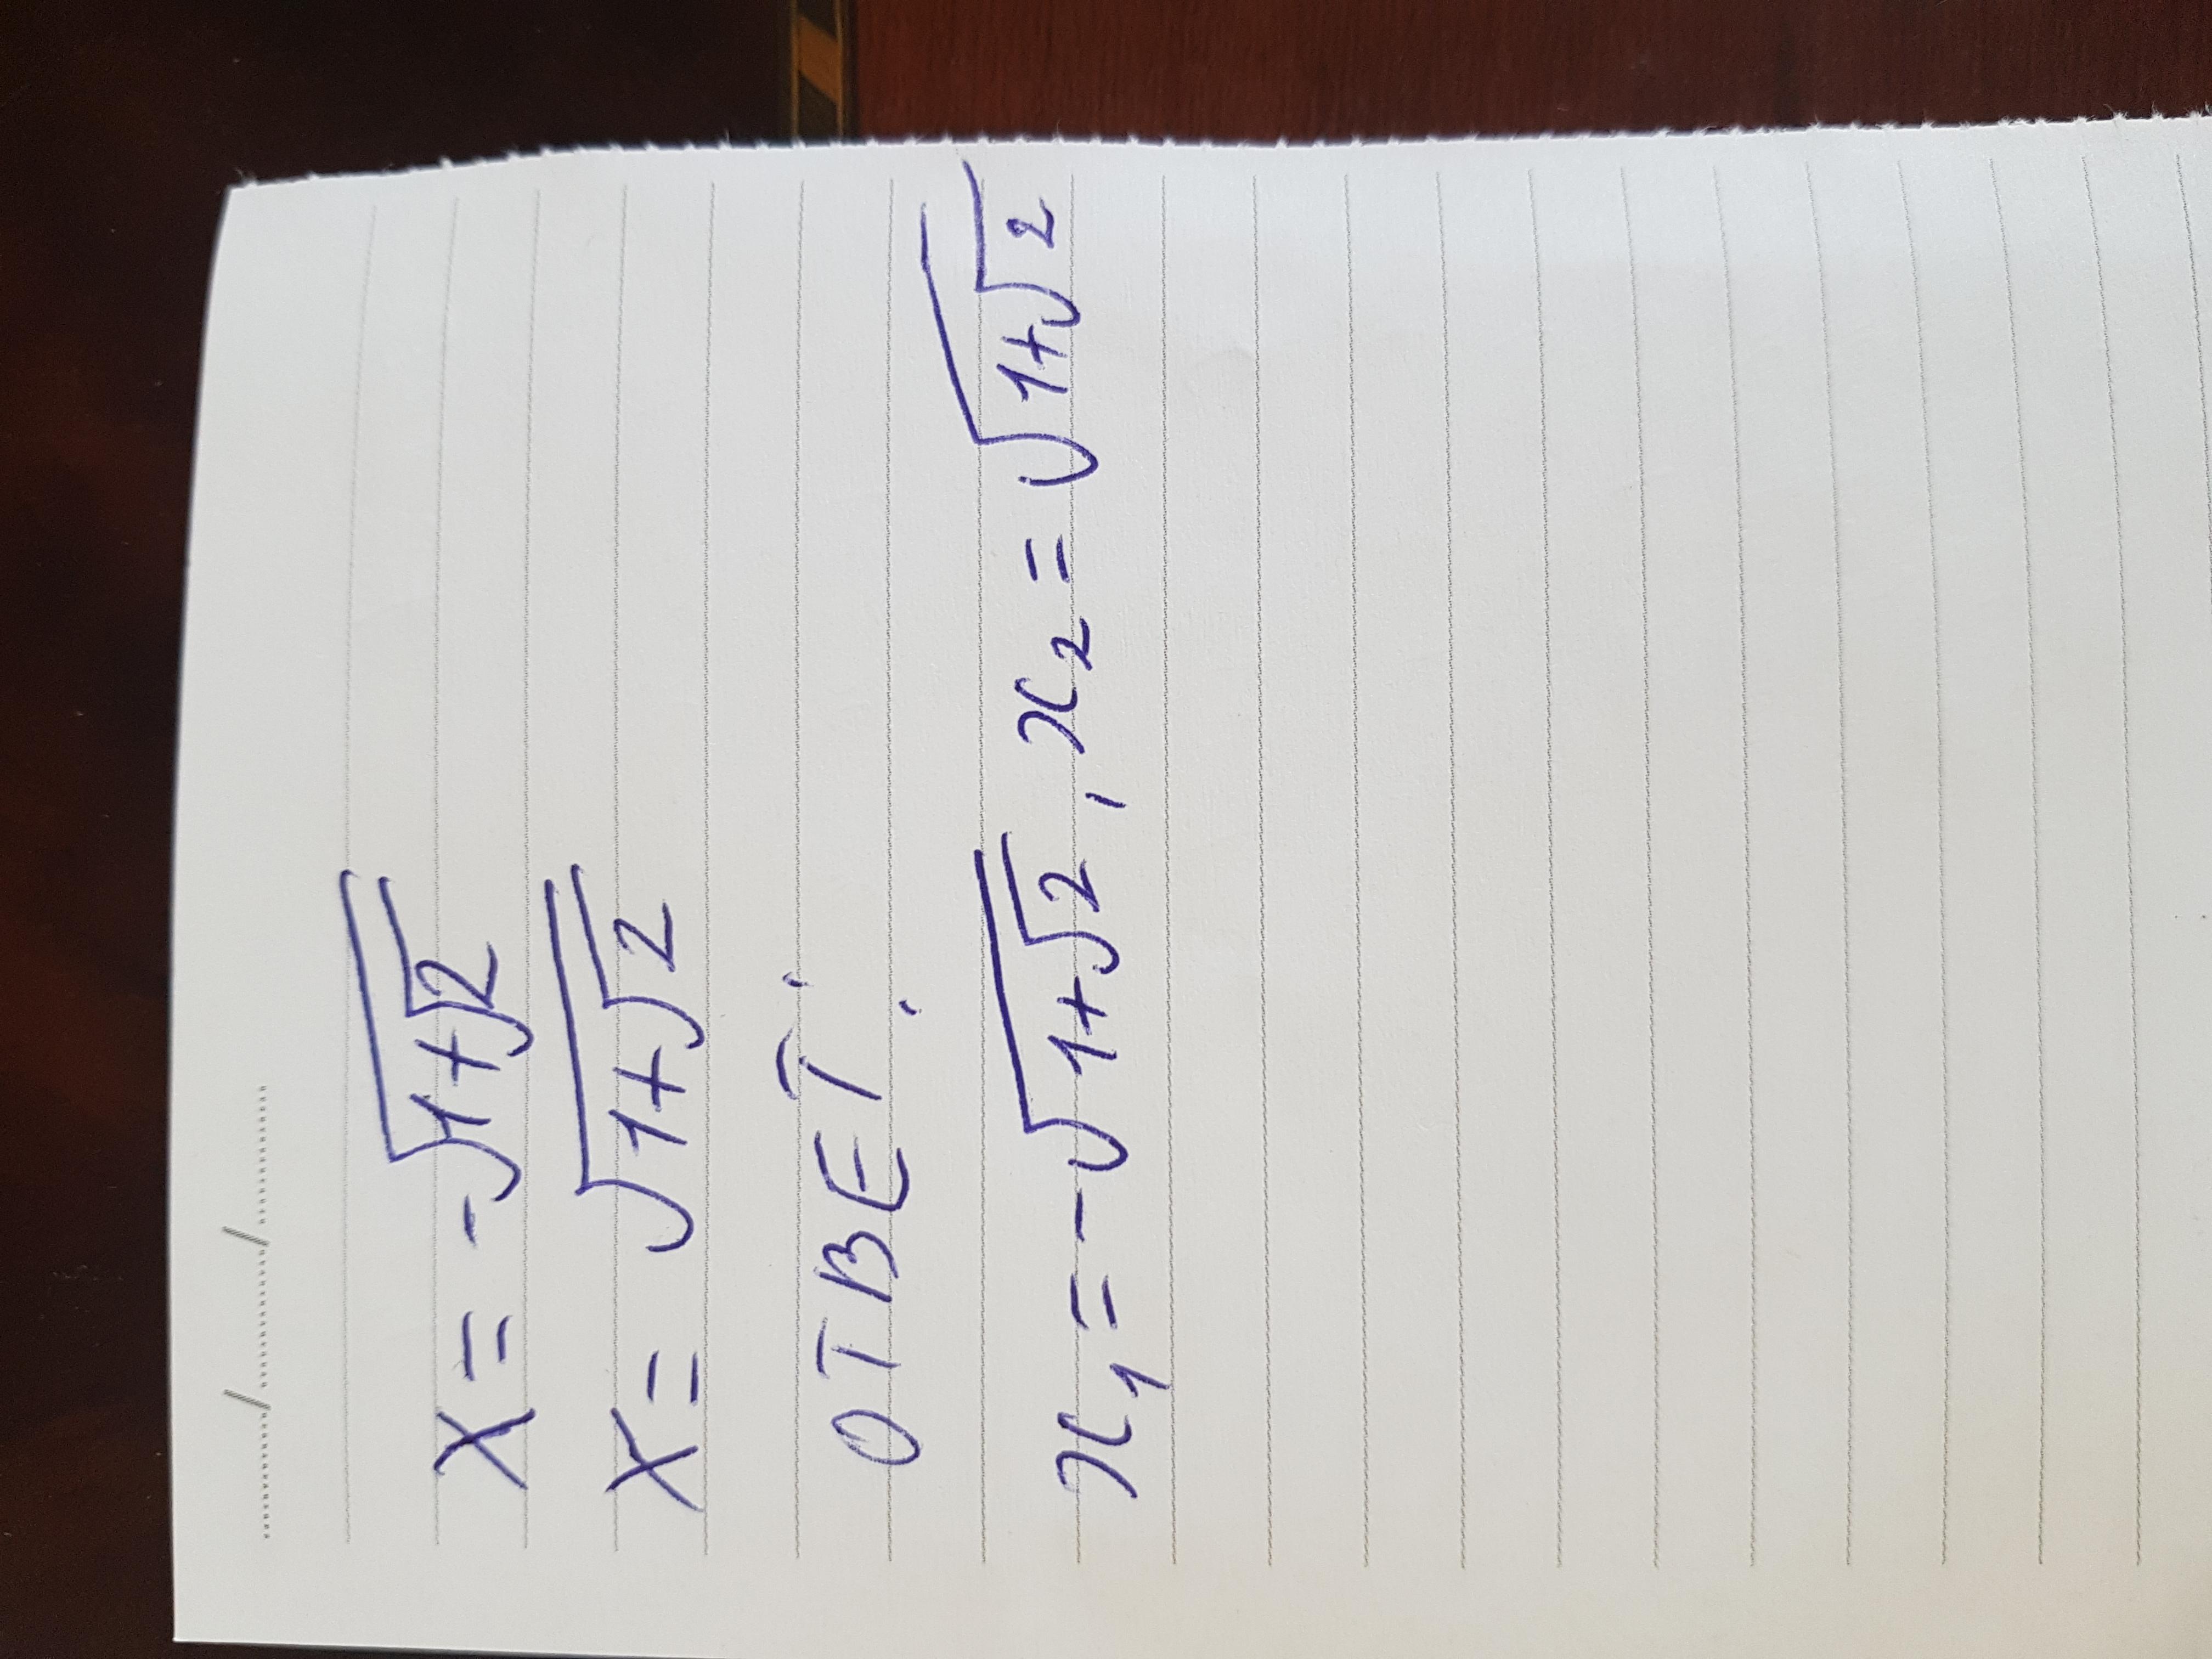 ......../......../........
x = -√(1+√2)
x = √(1+√2)
ОТВЕТ:
x₁ = -√(1+√2), x₂ = √(1+√2)